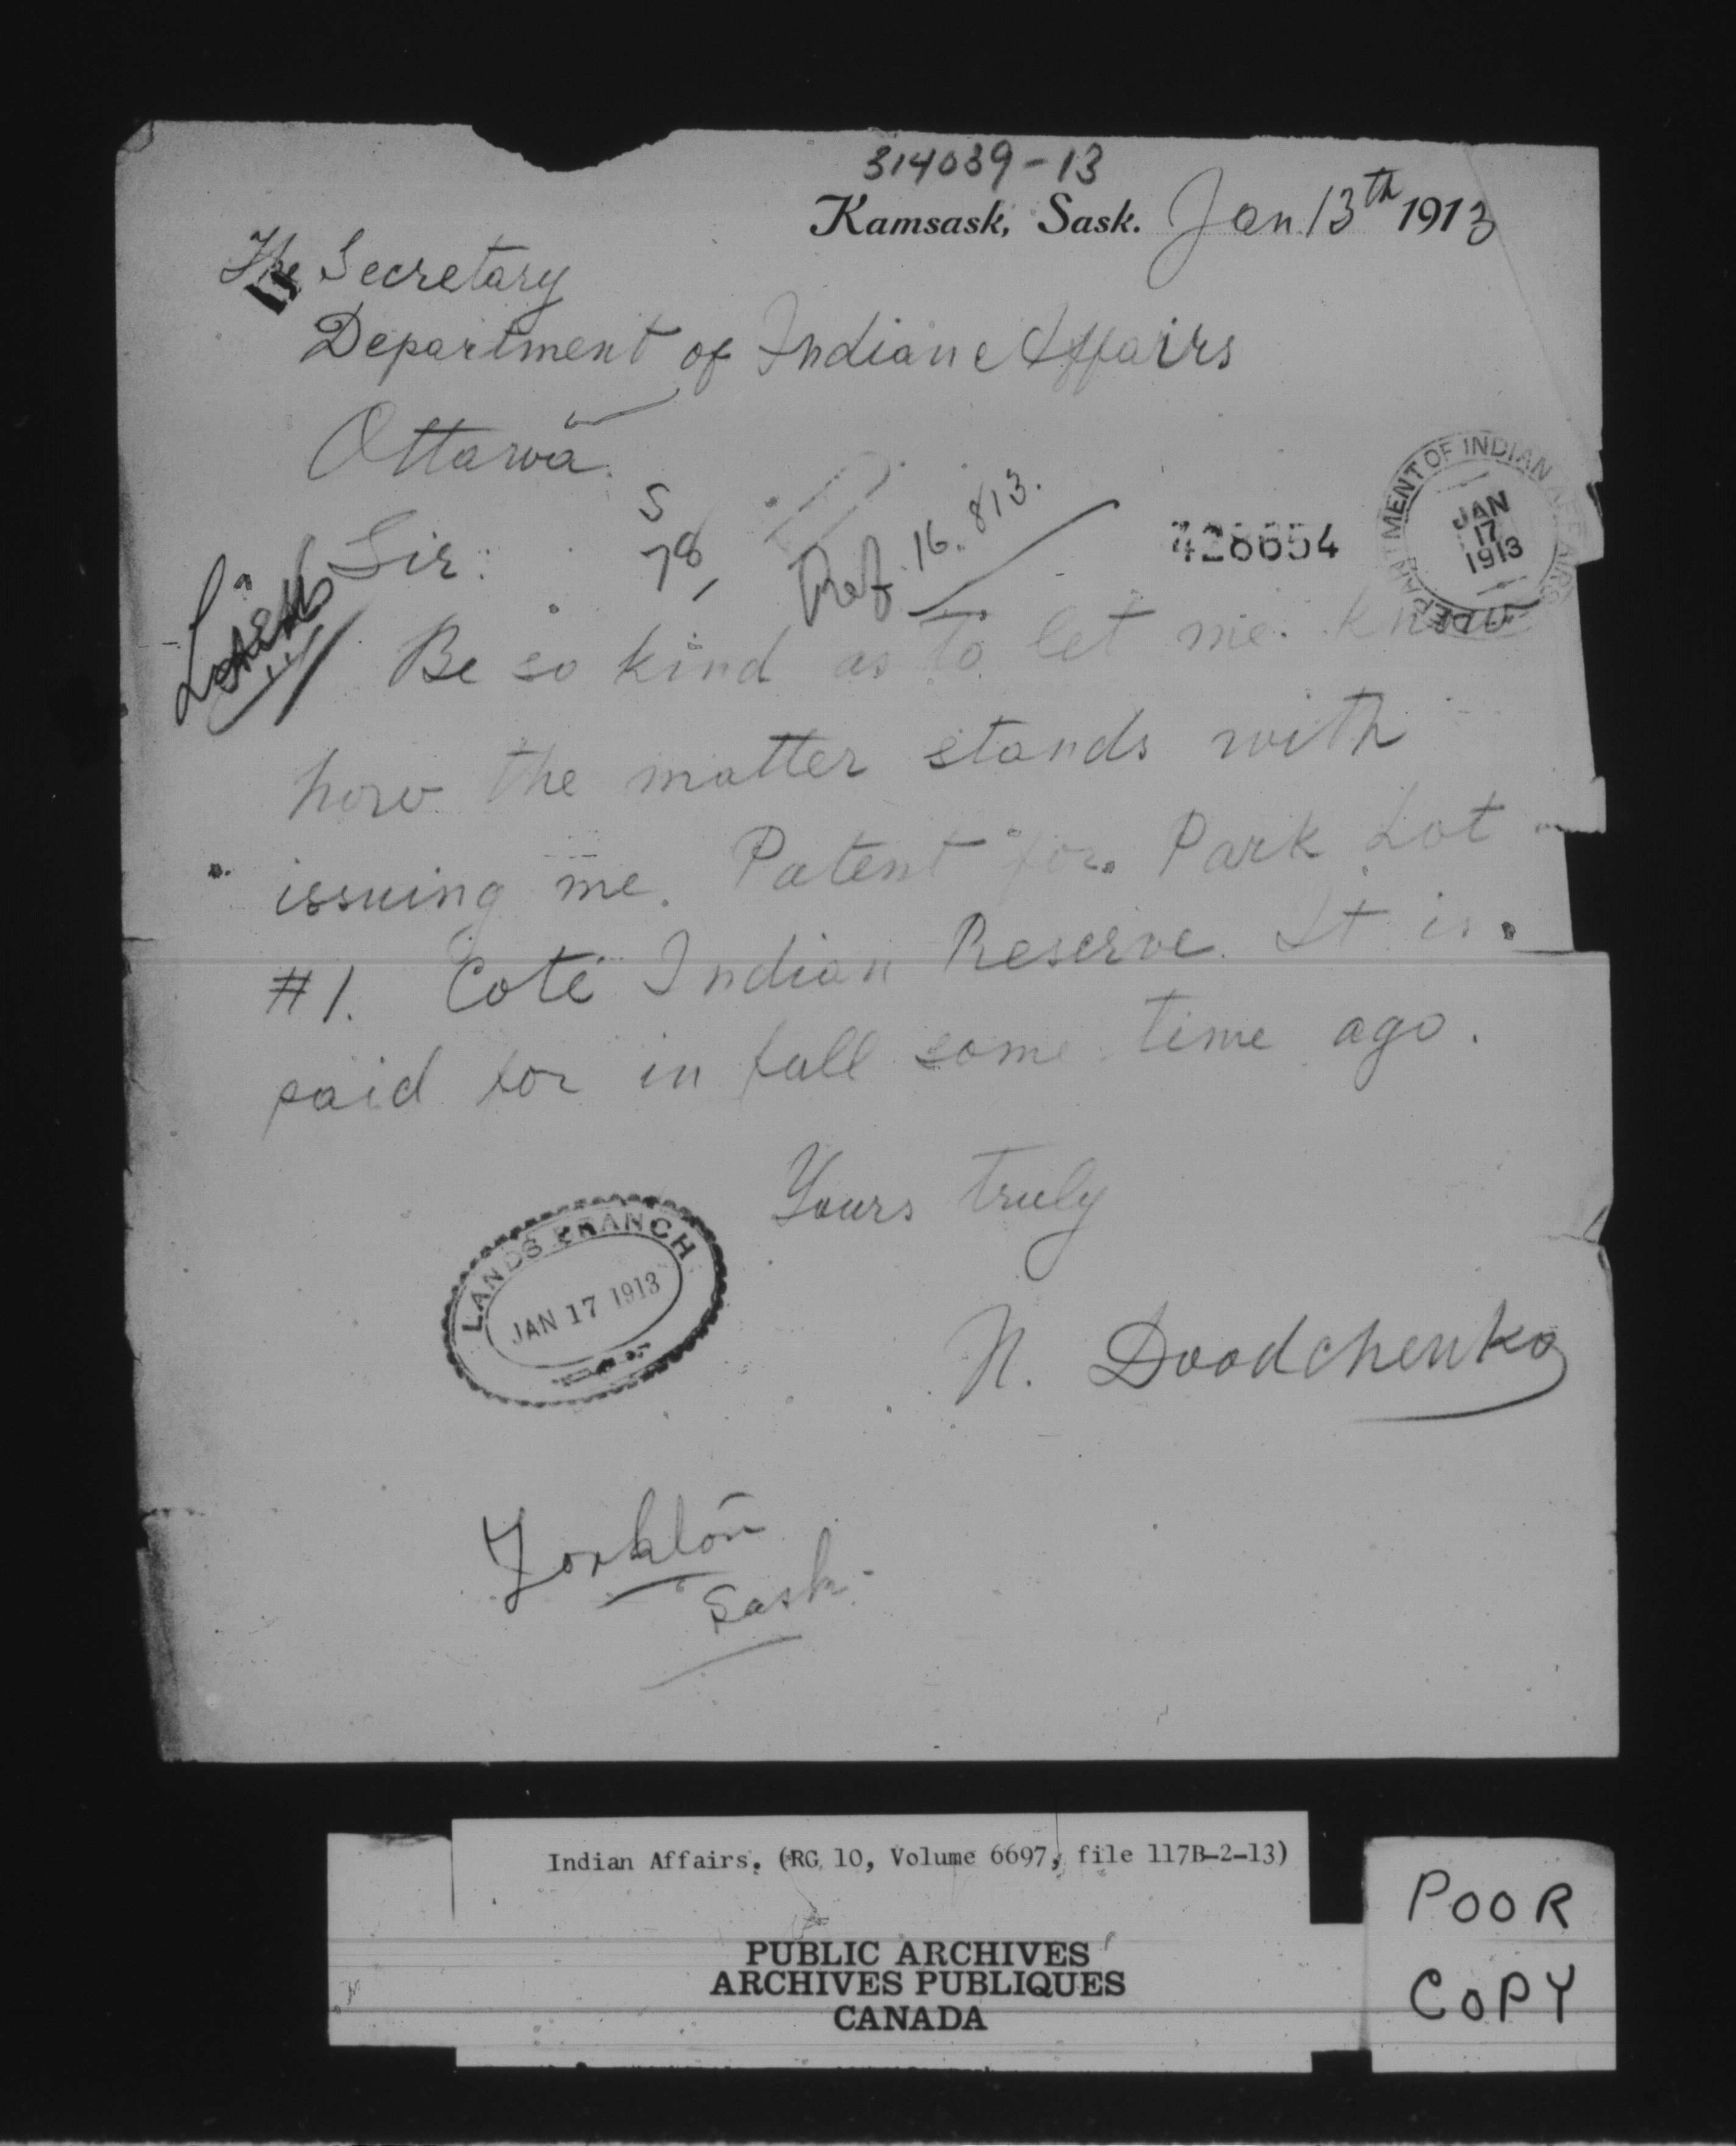 314039-13
Kamsask, Sask. Jan 13th 1913
The Secretary
Department of Indian Affairs
Ottawa.
S
78
Ref. 16. 813.
428654
DEPARTMENT OF INDIAN AFFAIRS
JAN
17
1913
Sir:
Be so kind as to let me know
how the matter stands with
issuing me. Patent for Park Lot
#1. Coté Indian Reserve. It is
paid for in full some time ago.
Yours truly
N. Doodchenko
LANDS BRANCH
JAN 17 1913
Yorkton
Sask.
Indian Affairs. (RG 10, Volume 6697, file 117B-2-13)
PUBLIC ARCHIVES
ARCHIVES PUBLIQUES
CANADA
POOR
COPY